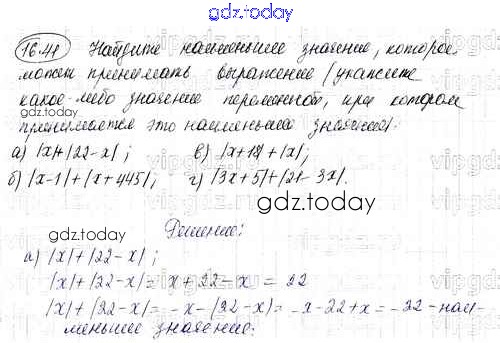 gdz.today
16.41 Найдите наименьшее значение, которое
может принимать выражение (укажите
какое-либо значение переменной, при котором
gdz.today
принимается это наименьшее значение):
а) |x|+|22-x|; в) |x+18|+|x|;
б) |x-1|+|x+445|; г) |3x+5|+|21-3x|.
gdz.today
gdz.today
Решение:
а) |x|+|22-x|;
|x|+|22-x|= x+22-x = 22
|x|+|22-x|= -x-(22-x)= -x-22+x = -22 - наи-
меньшее значение.